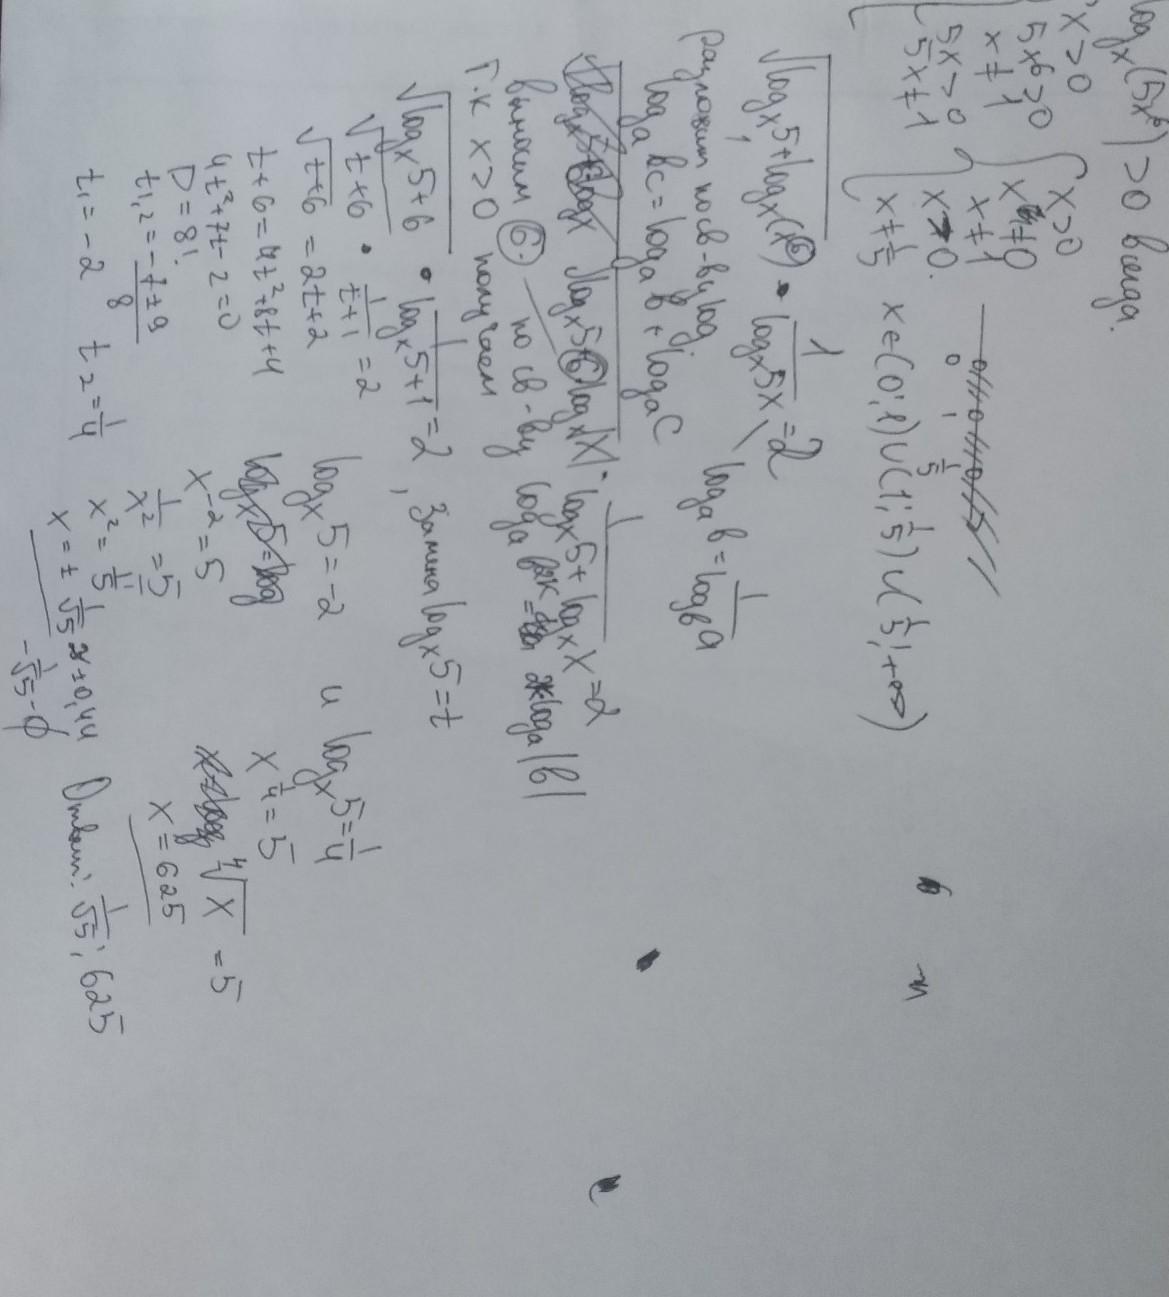 log_x(5x⁶) > 0 всегда.
x > 0
5x⁶ > 0
x ≠ 1
5x > 0
5x ≠ 1
x > 0
x ≠ 0
x ≠ 1
x > 0.
x ≠ 1/5
0 1 1/5
x ∈ (0; 1) ∪ (1; 1/5) ∪ (1/5; +∞)
√(log_x 5 + log_x(x⁶)) · 1/(log_x 5x) = 2
log_a b = 1/(log_b a)
разложим по св-ву log.
log_a bc = log_a b + log_a c
√(log_x 5 + 6 log_x |x|) · 1/(log_x 5 + log_x x) = 2
выносим 6 по св-ву log_a |b|
т.к x > 0 получаем
√(log_x 5 + 6) · 1/(log_x 5 + 1) = 2, Замена log_x 5 = t
√(t + 6) · 1/(t + 1) = 2
√(t + 6) = 2t + 2
t + 6 = 4t² + 8t + 4
4t² + 7t - 2 = 0
D = 81
t₁,₂ = (-7 ± 9)/8
t₁ = -2 t₂ = 1/4
log_x 5 = -2 и log_x 5 = 1/4
x⁻² = 5
1/x² = 5
x² = 1/5
x = ± 1/√5 ≈ ± 0,44
-1/√5 - ∅
x^(1/4) = 5
⁴√x = 5
x = 625
Ответ: 1/√5; 625